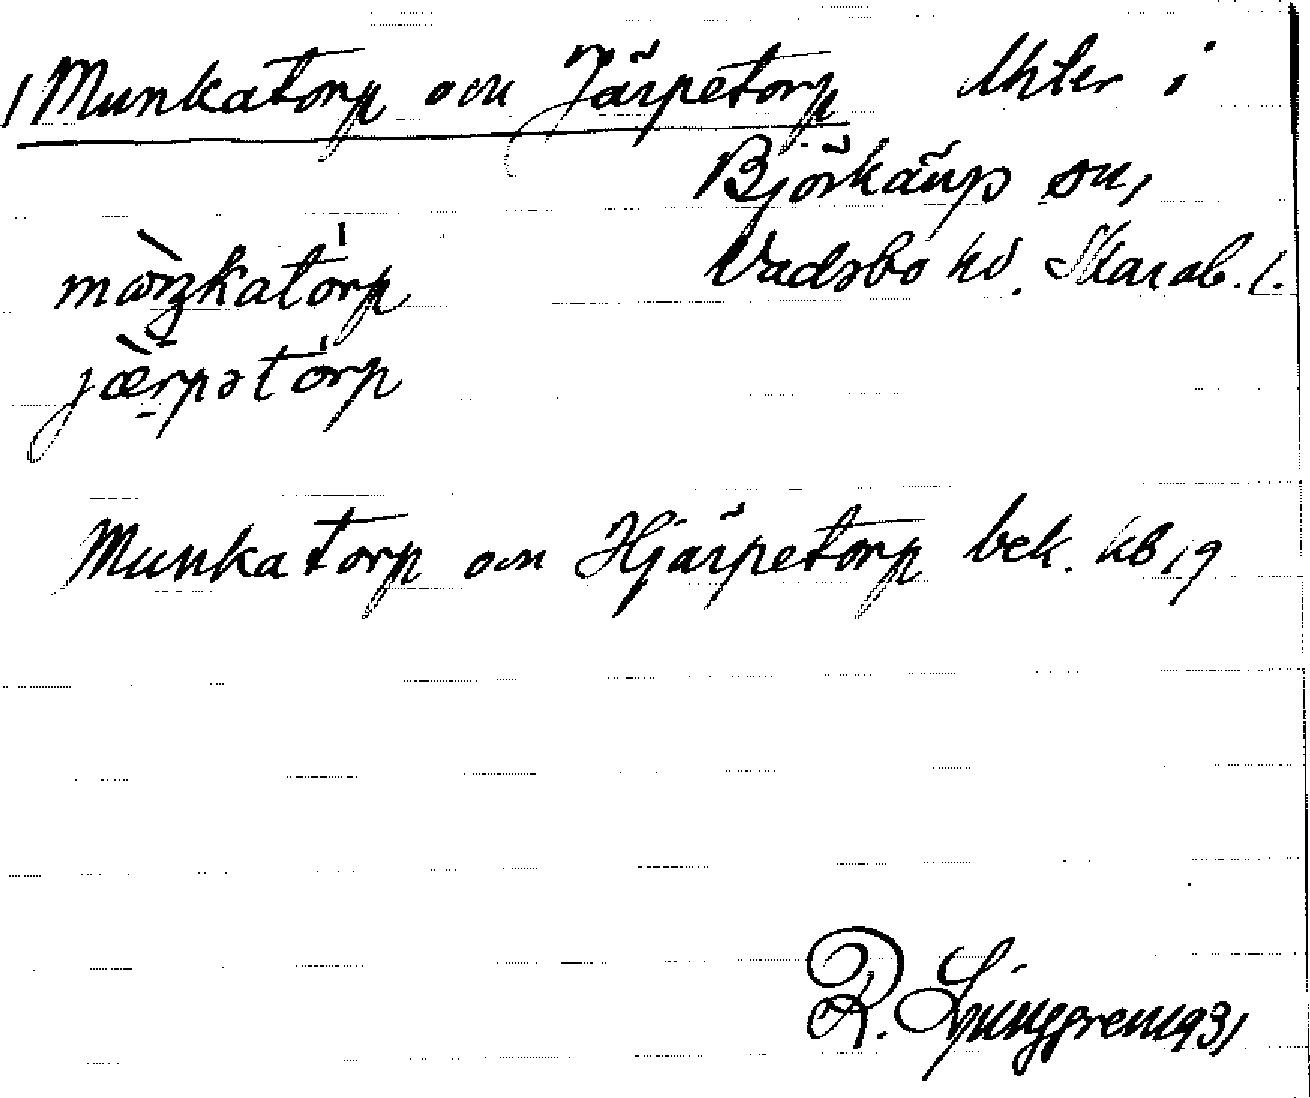 Munkatorp och Järpetorp Utter i
Björkäng sn,
Vadsbo hd. Skarab. l.
mòŋkatórp
jæ̀rpətórp
Munkatorp och Hjärpetorp bek. kb 19
R. Ljunggren 1931